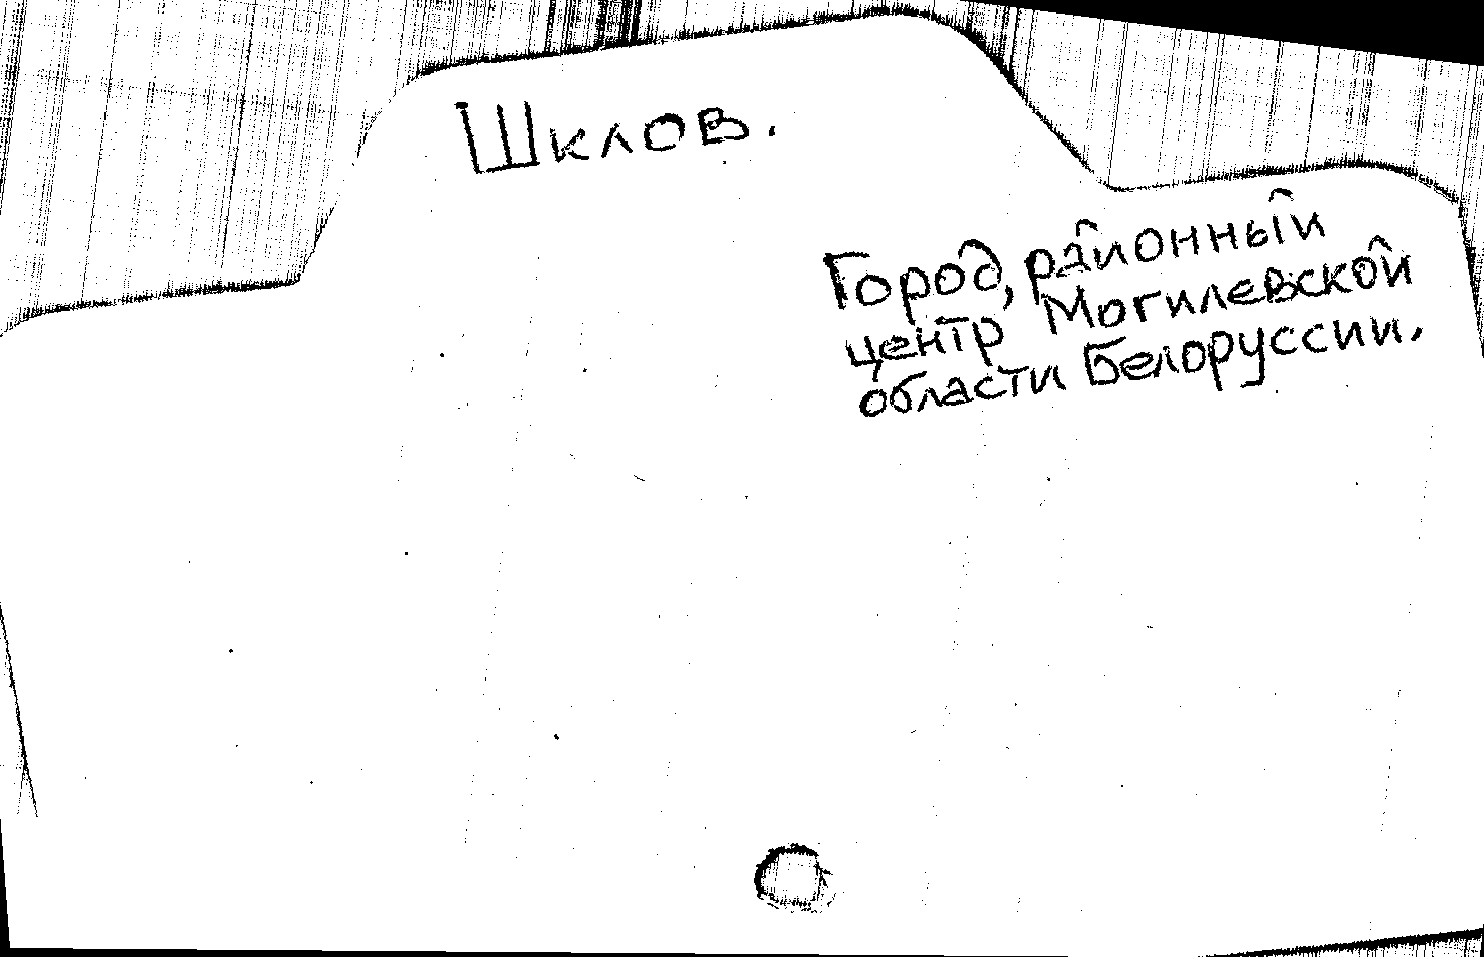 Шклов.
Город, районный
центр Могилевской
области Белоруссии.